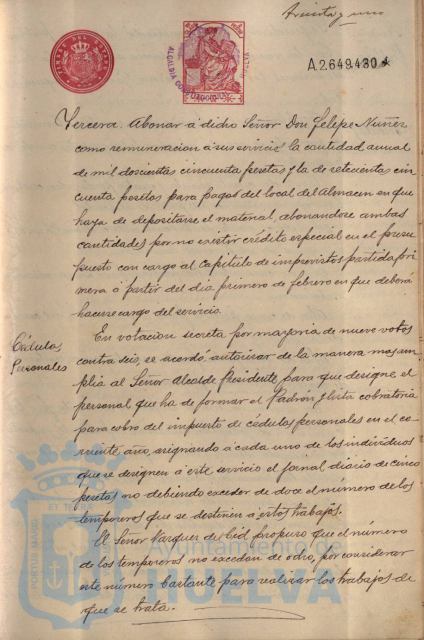 treinta y uno
TIMBRE DEL ESTADO
ALCALDIA CONSTITUCIONAL
HUELVA
A.2.649.430
Tercera. Abonar á dicho Señor Don Felipe Nuñez
como remuneracion á sus servicios la cantidad anual
de mil doscientas cincuenta pesetas y la de setecientas cin
cuenta pesetas para pagos del local del Almacen en que
haya de depositarse el material, abonandose ambas
cantidades por no existir crédito especial en el presu
puesto con cargo al Capítulo de imprevistos partida pri
mera á partir del dia primero de febrero en que deberá
hacerse cargo del servicio.
Cédulas
Personales
En votacion secreta por mayoria de nueve votos
contra seis, se acordó autorizar de la manera mas am
plia al Señor Alcalde Presidente para que designe el
personal que ha de formar el Padrón y lista cobratoria
para cobro del impuesto de cédulas personales en el co
rriente año, asignando á cada uno de los individuos
que se designen á este servicio el jornal diario de cinco
pesetas no debiendo exceder de doce el número de los
temporeros que se destinen á estos trabajos.
El Señor Vazquez del Cid propuso que el número
de los temporeros no excedan de ocho, por considerar
este número bastante para realizar los trabajos de
que se trata.
PORTUS MARIS
ET TERRÆ
Ayuntamiento de
HUELVA